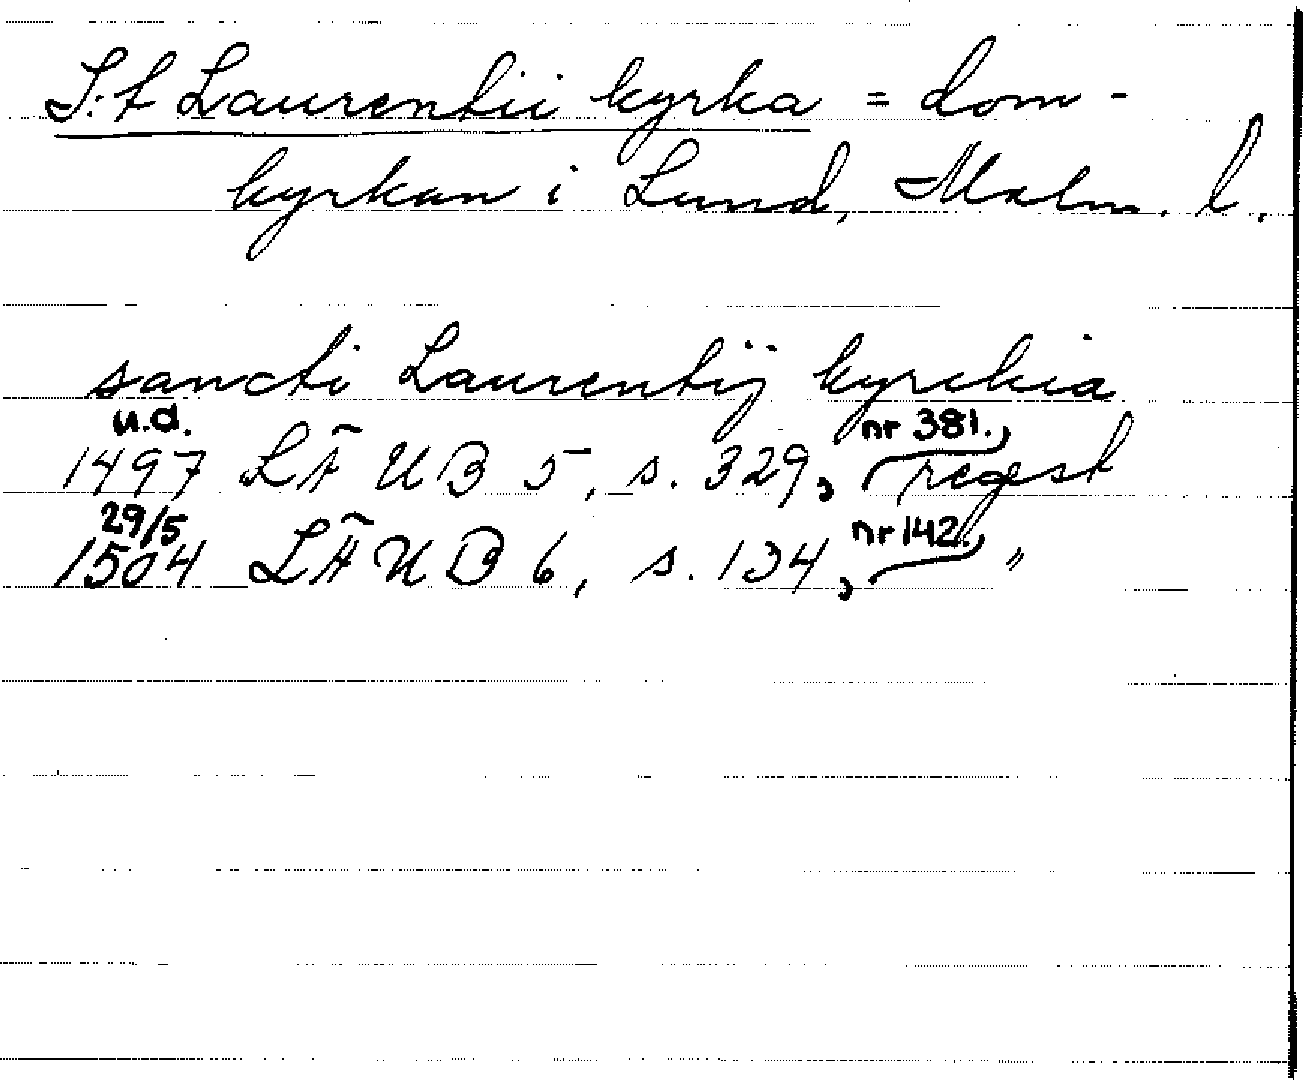 S:t Laurentii kyrka = dom-
kyrkan i Lund, Malm. l.
sancti Laurentij kyrckia
u.d.
1497 LÄUB 5, s. 329, nr 381., regest
29/5
1504 LÄUB 6, s. 134, nr 142., "